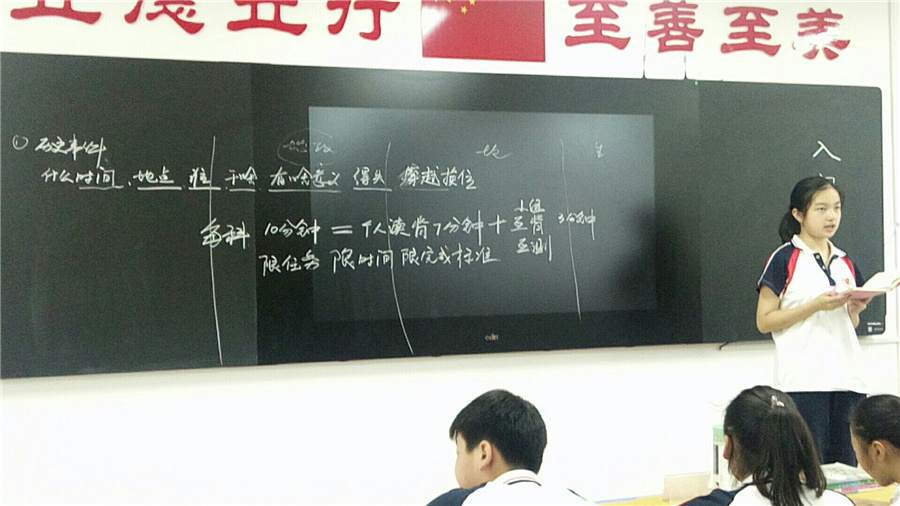 立德立行 至善至美
思政 地 生
① 历史事件
什么时间、地点 谁 干啥 有啥意义 得失 穿越换位
入
各科 10分钟 = 个人读背7分钟 + 小组互背互测 3分钟
限任务 限时间 限完成标准